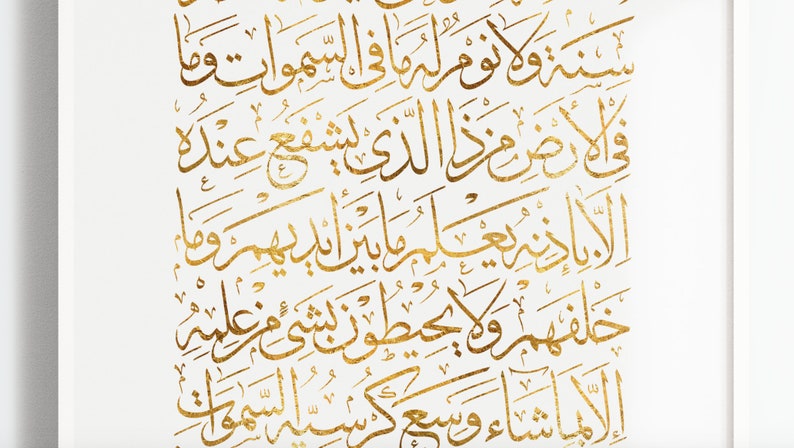 سِنَةٌ وَلَا نَوْمٌ لَهُ مَا فِي السَّمَوَاتِ وَمَا
فِي الْأَرْضِ مَنْ ذَا الَّذِي يَشْفَعُ عِنْدَهُ
إِلَّا بِإِذْنِهِ يَعْلَمُ مَا بَيْنَ أَيْدِيهِمْ وَمَا
خَلْفَهُمْ وَلَا يُحِيطُونَ بِشَيْءٍ مِنْ عِلْمِهِ
إِلَّا بِمَا شَاءَ وَسِعَ كُرْسِيُّهُ السَّمَوَاتِ